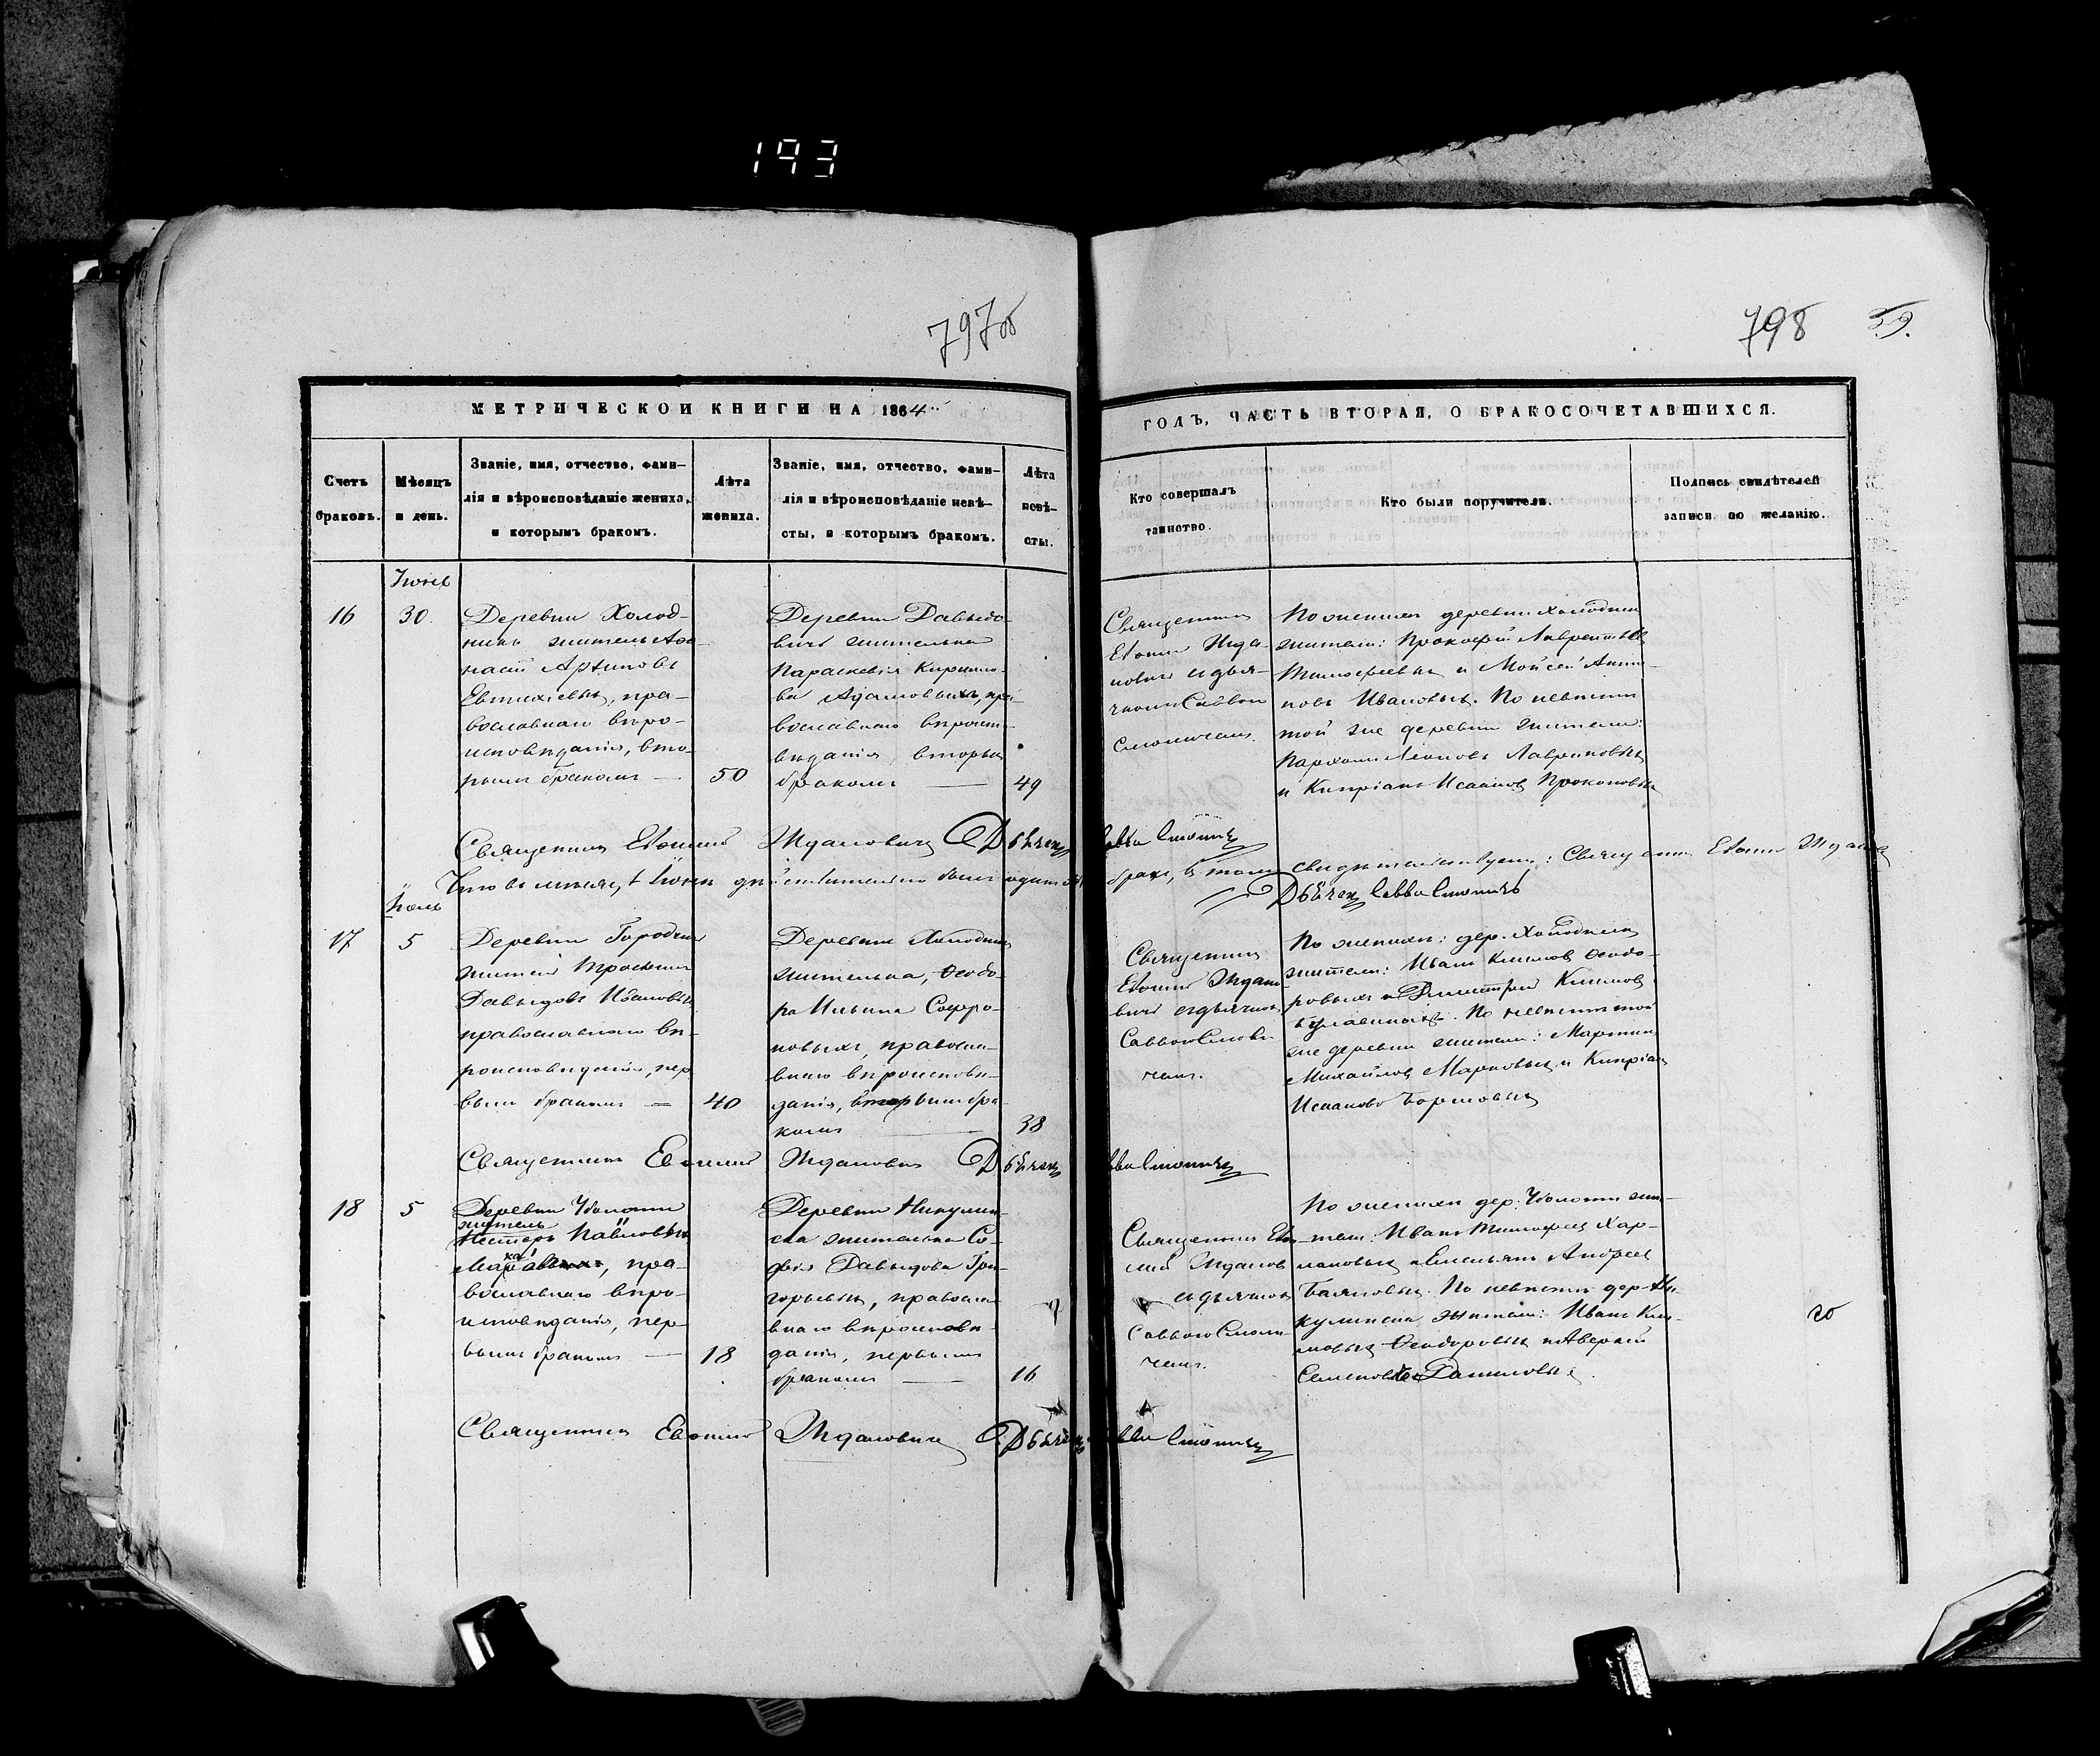 193
797об
798 59.
МЕТРИЧЕСКОЙ КНИГИ НА 1864
ГОДЪ, ЧАСТЬ ВТОРАЯ, О БРАКОСОЧЕТАВШИХСЯ.
Счетъ
браковъ.
Мѣсяцъ
и день.
Званіе, имя, отчество, фами-
лія и вѣроисповѣданіе жениха,
и которымъ бракомъ.
Лѣта
жениха.
Званіе, имя, отчество, фами-
лія и вѣроисповѣданіе невѣ-
сты, и которымъ бракомъ.
Лѣта
невѣ-
сты.
Кто совершалъ
таинство.
Кто были поручители.
Подпись свидѣтелей
записи по желанію.
Іюнь
16
30.
Деревни Холод-
никъ житель Аѳа-
насій Архиповъ
Евтихіевъ, пра-
вославнаго вѣро-
исповѣданія, вто-
рымъ бракомъ —
50
Деревни Давыдо-
вичъ жителька
Параскевія Кирило-
ва Адамовыхъ, пра-
вославнаго вѣроиспо-
вѣданія, вторымъ
бракомъ —
49
Священникъ
Евѳимій Жда-
новичъ съ дья-
чкомъ Саввою
Смоличемъ.
По женихѣ деревни Холодникъ
жители: Прокофій Лаврентьевъ
Тимофеевыхъ и Мойсей Анти-
повъ Ивановыхъ. По невѣстѣ
той же деревни жители:
Пархомъ Леоновъ Лавриновыхъ
и Кипріанъ Исааковъ Прокоповыхъ
Священникъ Евѳимій Ждановичъ Дьячекъ Савва Смоличъ
Что въ мѣсяцѣ Іюнѣ дѣйствительно былъ одинъ бракъ, въ томъ свидѣтельствуемъ: Священникъ Евѳимій Ждановичъ
Дьячекъ Савва Смоличъ
Іюль
17
5
Деревни Городчи
житель Трофимъ
Давыдовъ Ивановыхъ
православнаго вѣ-
роисповѣданія, пер-
вымъ бракомъ —
40
Деревни Холодникъ
жителька, Ѳеодо-
ра Ильина Софро-
новыхъ, правосла-
внаго вѣроисповѣ-
данія, вторымъ бра-
комъ —
38
Священникъ
Евѳимій Ждано-
вичъ съ дьячкомъ
Саввою Смоли-
чемъ.
По женихѣ: дер. Холодникъ
жители: Иванъ Климовъ Ѳеодо-
ровыхъ и Димитрій Климовъ
. По невѣстѣ той
же деревни жители: Мартинъ
Михайловъ Марковыхъ и Кипріанъ
Исааковъ
Священникъ Евѳимій Ждановичъ Дьячекъ Савва Смоличъ
18
5
Деревни Уболоти
житель
Нестеръ Павловъ
, пра-
вославнаго вѣро-
исповѣданія, пер-
вымъ бракомъ —
18
Деревни Никулин-
ска жителька Со-
фія Давыдова Гри-
горьевыхъ, правосла-
внаго вѣроисповѣ-
данія, первымъ
бракомъ —
16
Священникъ Евѳи-
мій Ждановичъ
съ дьячкомъ
Саввою Смоли-
чемъ.
По женихѣ дер. Уболоти жи-
тели: Иванъ Тимофеевъ Хар-
лановыхъ и Емельянъ Андреевъ
. По невѣстѣ дер. Ни-
кулинска жители: Иванъ Кли-
мовыхъ Ѳеодоровыхъ и Аверкій
Семеновъ Даниловыхъ.
Священникъ Евѳимій Ждановичъ Дьячекъ Савва Смоличъ